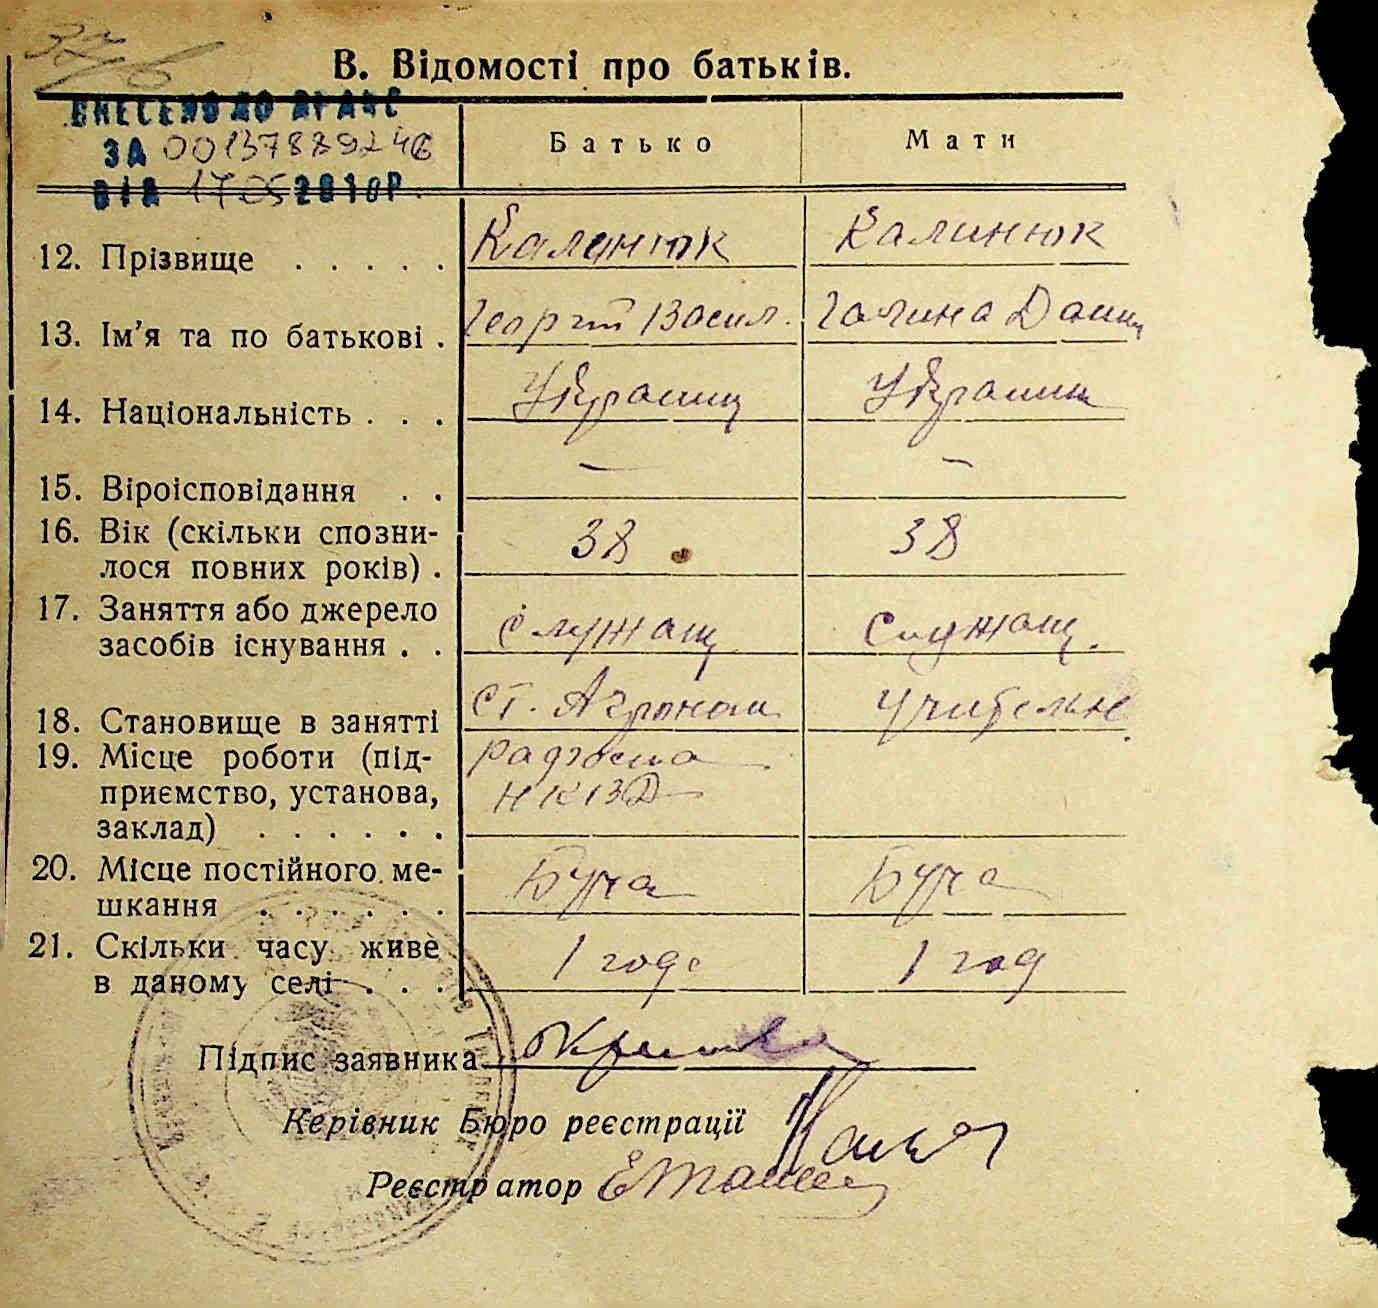 37/в
В. Відомості про батьків.
ВНЕСЕНО ДО ДРАЦС
ЗА 00137889246
ВІД 17.05 2010Р.
Батько Мати
12. Прізвище . . . . . Калинюк Калинюк
13. Ім'я та по батькові . Георгій Васил. Галина Данил
14. Національність . . . Украинц Украинк
15. Віроісповідання . . — —
16. Вік (скільки спозни-
лося повних років) . 38 38
17. Заняття або джерело
засобів існування . . служащ служащ.
18. Становище в занятті Ст. Агроном Учительн.
19. Місце роботи (під- радгоспа
приємство, установа, НКВД
заклад) . . . . . .
20. Місце постійного ме-
шкання . . . . . . Буча Буча
21. Скільки часу живе
в даному селі . . . 1 год 1 год
Підпис заявника
Керівник Бюро реєстрації
Реєстратор